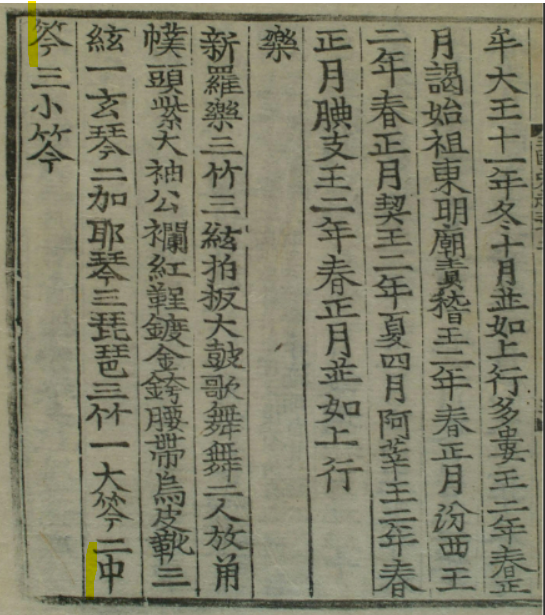 牟大王十一年冬十月並如上行多婁王二年春正
月謁始祖東明廟責稽王二年春正月汾西王
二年春正月契王二年夏四月阿莘王二年春
正月腆支王二年春正月並如上行
樂
新羅樂三竹三絃拍板大鼓歌舞舞二人放角
幞頭紫大袖公襴紅鞓鍍金銙腰帶烏皮靴三
絃一玄琴二加耶琴三琵琶三竹一大笒二中
笒三小笒